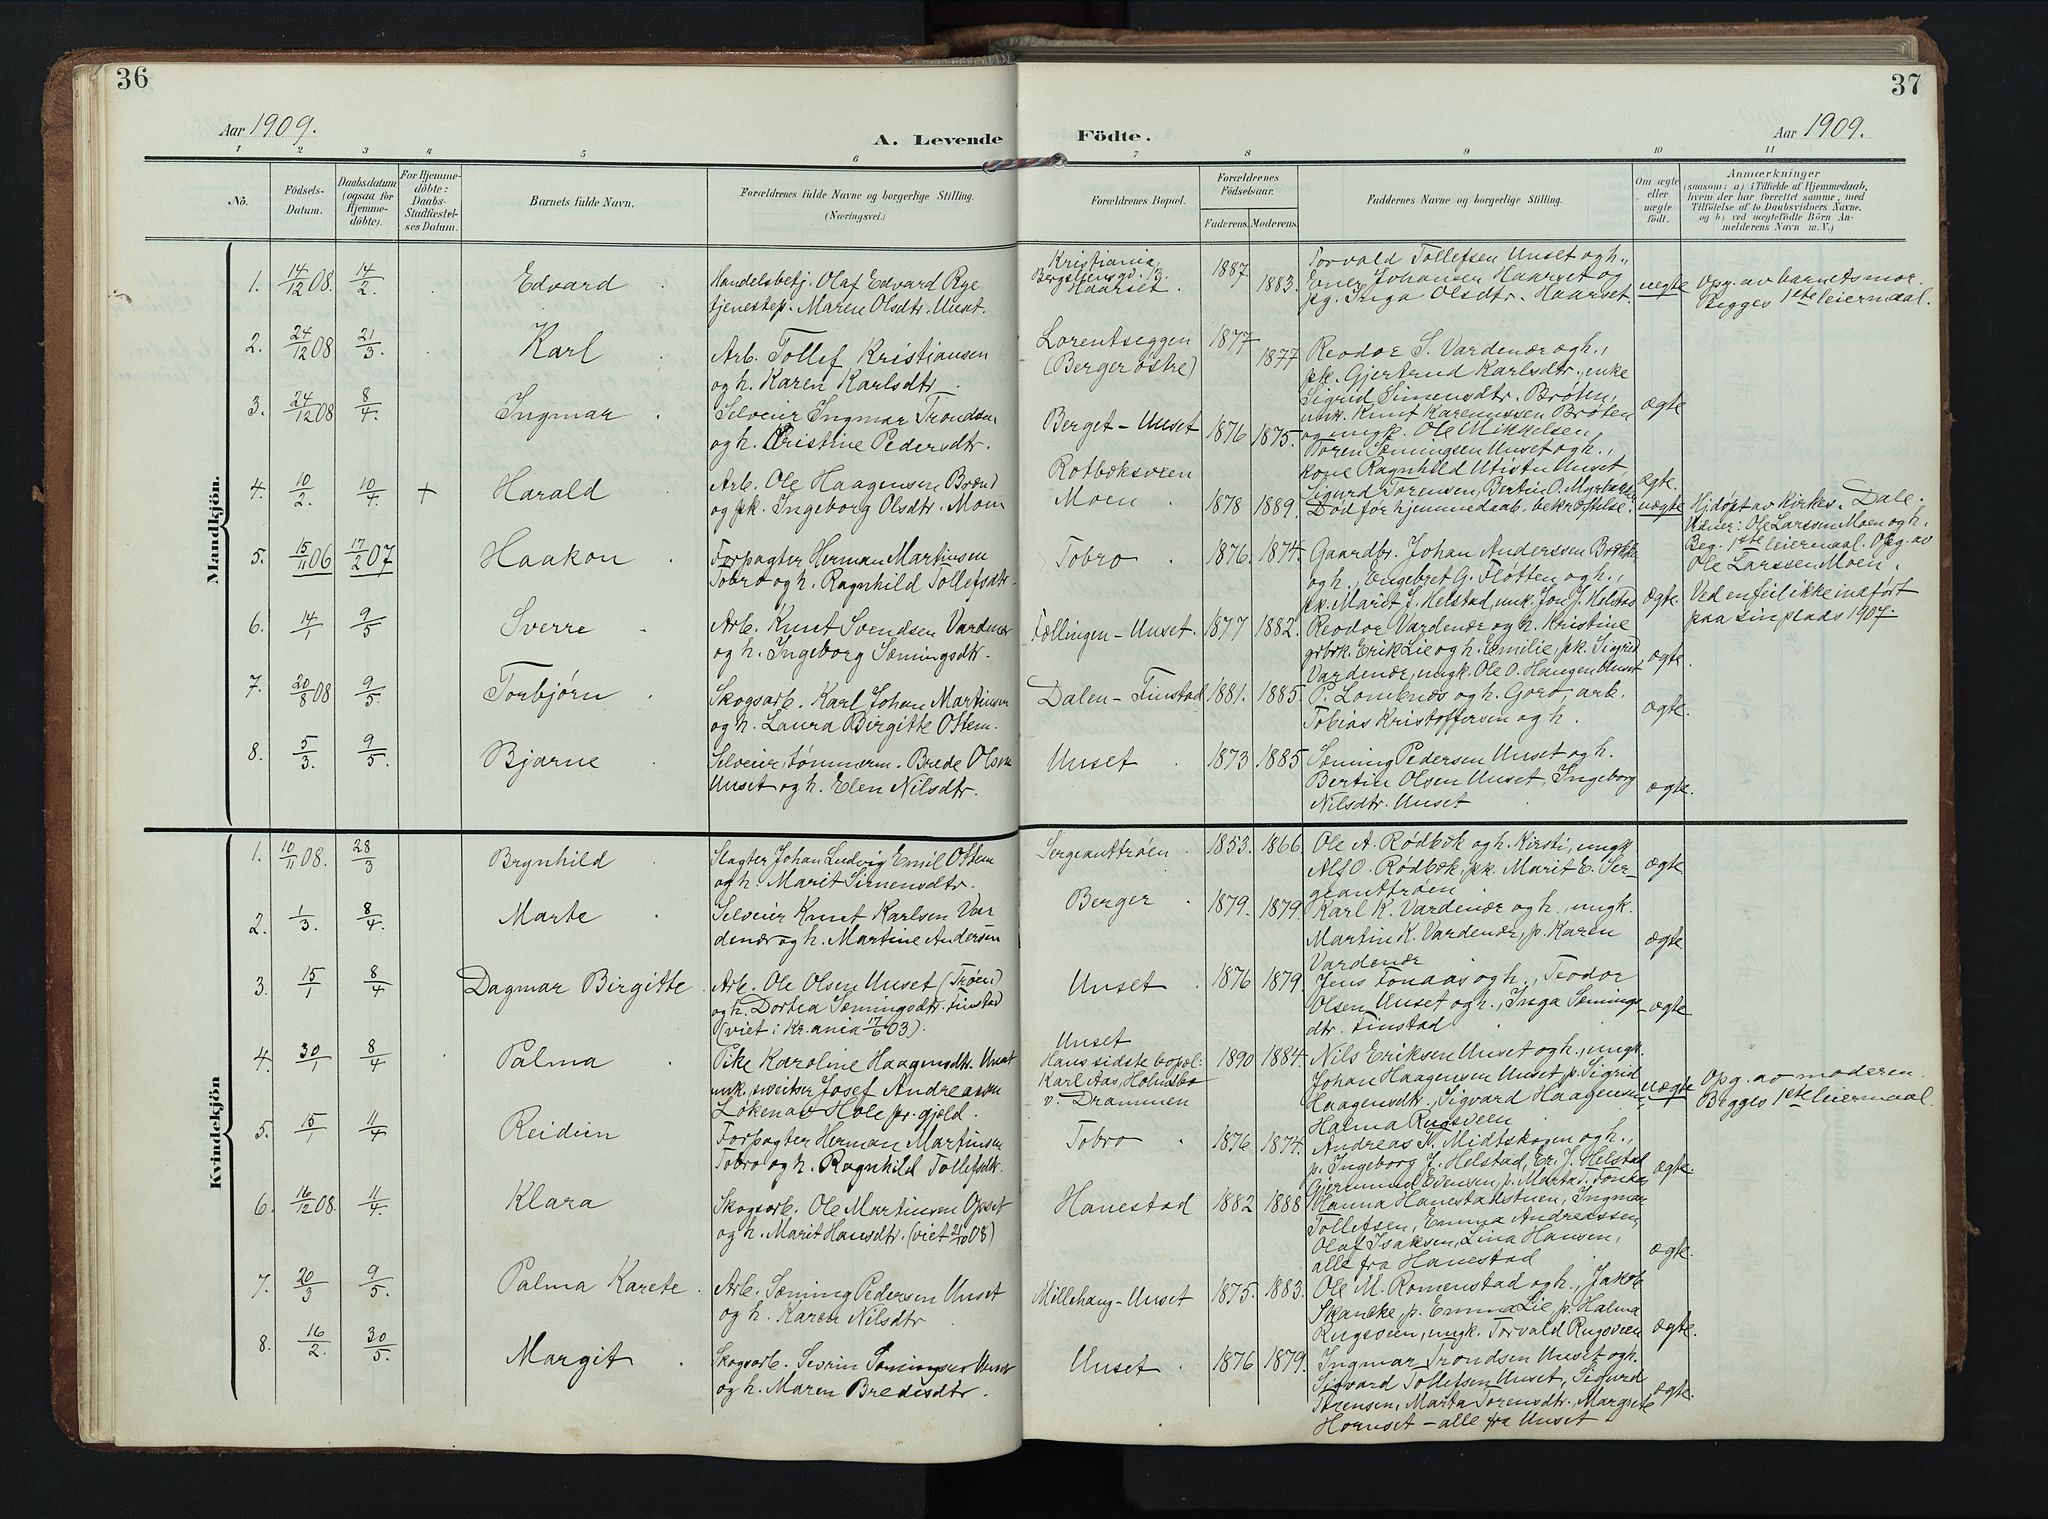 36
37
Aar 1909.
A. Levende
Födte.
Aar 1909.
1 2 3 4 5 6 7 8 9 10 11
Nô.
Födsels-
Datum.
Daabsdatum
(ogsaa for
Hjemme-
döbte).
For Hjemme-
döbte:
Daabs-
Stadfæstel-
ses Datum.
Barnets fulde Navn.
Forældrenes fulde Navne og borgerlige Stilling.
(Næringsvei.)
Forældrenes Bopæl.
Forældrenes
Födselsaar.
Faderens. Moderens.
Faddernes Navne og borgerlige Stilling.
Om ægte
eller
uægte
födt.
Anmærkninger
(saasom: a) i Tilfælde af Hjemmedaab,
hvem der har forrettet samme, med
Tilföielse af to Daabsvidners Navne.
og b) ved uægtefödte Börn An-
melderens Navn m. V.)
Mandkjön.
1. 14/12 08. 14/2. Edvard
Handelsbetj. Olaf Edvard Rye
tjenestep. Maren Olsdtr. Unset.
Kristiania,
Bergslensgd. 13.
Haarset.
1887 1883.
Torvald Tollefsen Unset og h.,
Ener Johansen Haarset og
pg. Inga Olsdtr. Haarset.
uægte
Opg. av barnets mor.
Begges 1ste leiermaal.
2. 24/12 08 21/3. Karl
Arb. Tollef Kristiansen
og h. Karen Karlsdtr.
Lorentseggen
(Berger østre)
1877 1877
Reodor S. Vardenær og h.,
pk. Gjertrud Karlsdtr., enke
Sigrid Simensdtr. Brøten,
ungk. Knut Karenussen Brøten
og ungk. Ole Mikkelsen
ægte
3. 24/12 08 8/4. Ingmar
Selveier Ingmar Trondsen
og h. Kristine Pedersdtr.
Berget - Unset
1876 1875.
Toren Sæmingsen Unset og h.,
kone Ragnhild Utistu Unset,
Sigurd Torensen, Bertin O. Myrbakke
ægte.
4. 10/2. 10/4. + Harald
Arb. Ole Haagensen Brænd
og pk. Ingeborg Olsdtr. Moen
Rotbæksveen
Moen
1878 1889.
Død før hjemmedaab. bekræftelse.
uægte
Hjdøpt av Kirkes. Dale.
Vidner: Ole Larssen Moen og h.
Beg. 1ste leiermaal. Opg. av
Ole Larssen Moen.
5. 15/11 06 17/2 07 Haakon
Forpagter Herman Martinsen
Tobro og h. Ragnhild Tollefsdtr.
Tobro
1876. 1874.
Gaardbr. Johan Anderssen Bække
og h., Engebret G. Fløtten og h.,
pk. Marit J. Helstad, unk. Jon J. Helstad
ægte.
Ved en feil ikke indført
paa sin plads 1907.
6. 14/1 9/5 Sverre
Arb. Knut Svendsen Vardenær
og h. Ingeborg Sæmingsdtr.
Fællingen - Unset.
1877 1882.
Reodor Vardenær og h. Kristine
grbrk. Erik Lie og h. Emilie, pk. Sigrid
Vardenær, ungk. Ole O. Haugen Unset
ægte.
7. 20/8 08 9/5. Torbjørn
Skogsarb. Karl Johan Martinsen
og h. Laura Birgitte Ostem.
Dalen - Finstad
1881. 1885.
P. Lonæbnæs og h. Goro, arb.
Tobias Kristoffersen og h.
ægte.
8. 5/3. 9/5 Bjarne
Selveier, tømmerm. Brede Olsen
Unset og h. Elen Nilsdtr.
Unset
1873 1885
Sæming Pedersen Unset og h.
Bertin Olsen Unset, Ingeborg
Nilsdtr. Unset
ægte.
Kvindekjön
1. 10/11 08. 28/3 Brynhild
Slagter Johan Ludvig Emil Ostem
og h. Marit Simensdtr.
Sergeanttrøen
1853. 1866
Ole A. Rødbæk og h. Kirsti, ungk
Alf O. Rødbæk, pk. Marit E. Ser-
geanttrøen
ægte
2. 1/3 8/4. Marte
Selveier Knut Karlsen Var
denær og h. Martine Andersen
Berger
1879. 1879.
Karl K. Vardenær og h., ungk.
Martin K. Vardenær, p. Karen
Vardenær
ægte.
3. 15/1 8/4 Dagmar Birgitte
Arb. Ole Olsen Unset (Trøen)
og h. Dortea Sæmingsdtr. Finstad
(viet i Kr.ania 17/6 03).
Unset
1876 1879.
Jens Fonaas og h., Teodor
Olsen Unset og h., Inga Sæmings-
dtr. Finstad
ægte
4. 30/1 8/4 Palma
Pike Karoline Haagensdtr. Unset
unk. sveitser Josef Andreassen
Løken av Hole pr.gjeld.
Unset
Hans sidste bopæl:
Karl Aas, Holmsbo
v. Drammen
1890 1884.
Nils Eriksen Unset og h., ungk.
Johan Haagensen Unset, p. Sigrid
Haagensdtr., Sigvard Haagensen,
Halma Rugsveen
uægte
Opg. av moderen.
Begges 1ste leiermaal.
5. 15/1 11/4 Reidun
Forpagter Herman Martinsen
Tobro og h. Ragnhild Tollefsdtr.
Tobro
1876 1874.
Andreas K. Midtskogen og h.,
p. Ingeborg J. Helstad, Er. J. Helstad
Gjermund Evensen, p. Marta T. Fonaas
ægte.
6. 16/12 08. 11/4. Klara
Skogsarb. Ole Martinsen Opset
og h. Marit Hansdtr. (viet 21/10 08)
Hanestad
1882 1888
Hanna Hanestadstuen, Ingmar
Tollefsen, Emma Andreassen,
Olaf Isaksen, Lina Hansen,
alle fra Hanestad
ægte.
7. 20/3 9/5. Palma Karete
Arb. Sæming Pedersen Unset
og h. Karen Nilsdtr
Millehaug - Unset
1875. 1883.
Ole M. Romenstad og h., Jakob
Skancke, p. Emma Lie, p. Halma
Rugsveen, ungk. Torvald Rugsveen
ægte.
8. 16/2. 30/5. Margit
Skogsarb. Sevrin Sæmingsen Unset
og h. Maren Bredesdtr.
Unset
1876 1879.
Ingmar Trondsen Unset og h.
Sigvard Tollefsen Unset, Sigurd
Torensen, Marta Torensdtr. Margrete
Hornset - alle fra Unset
ægte.